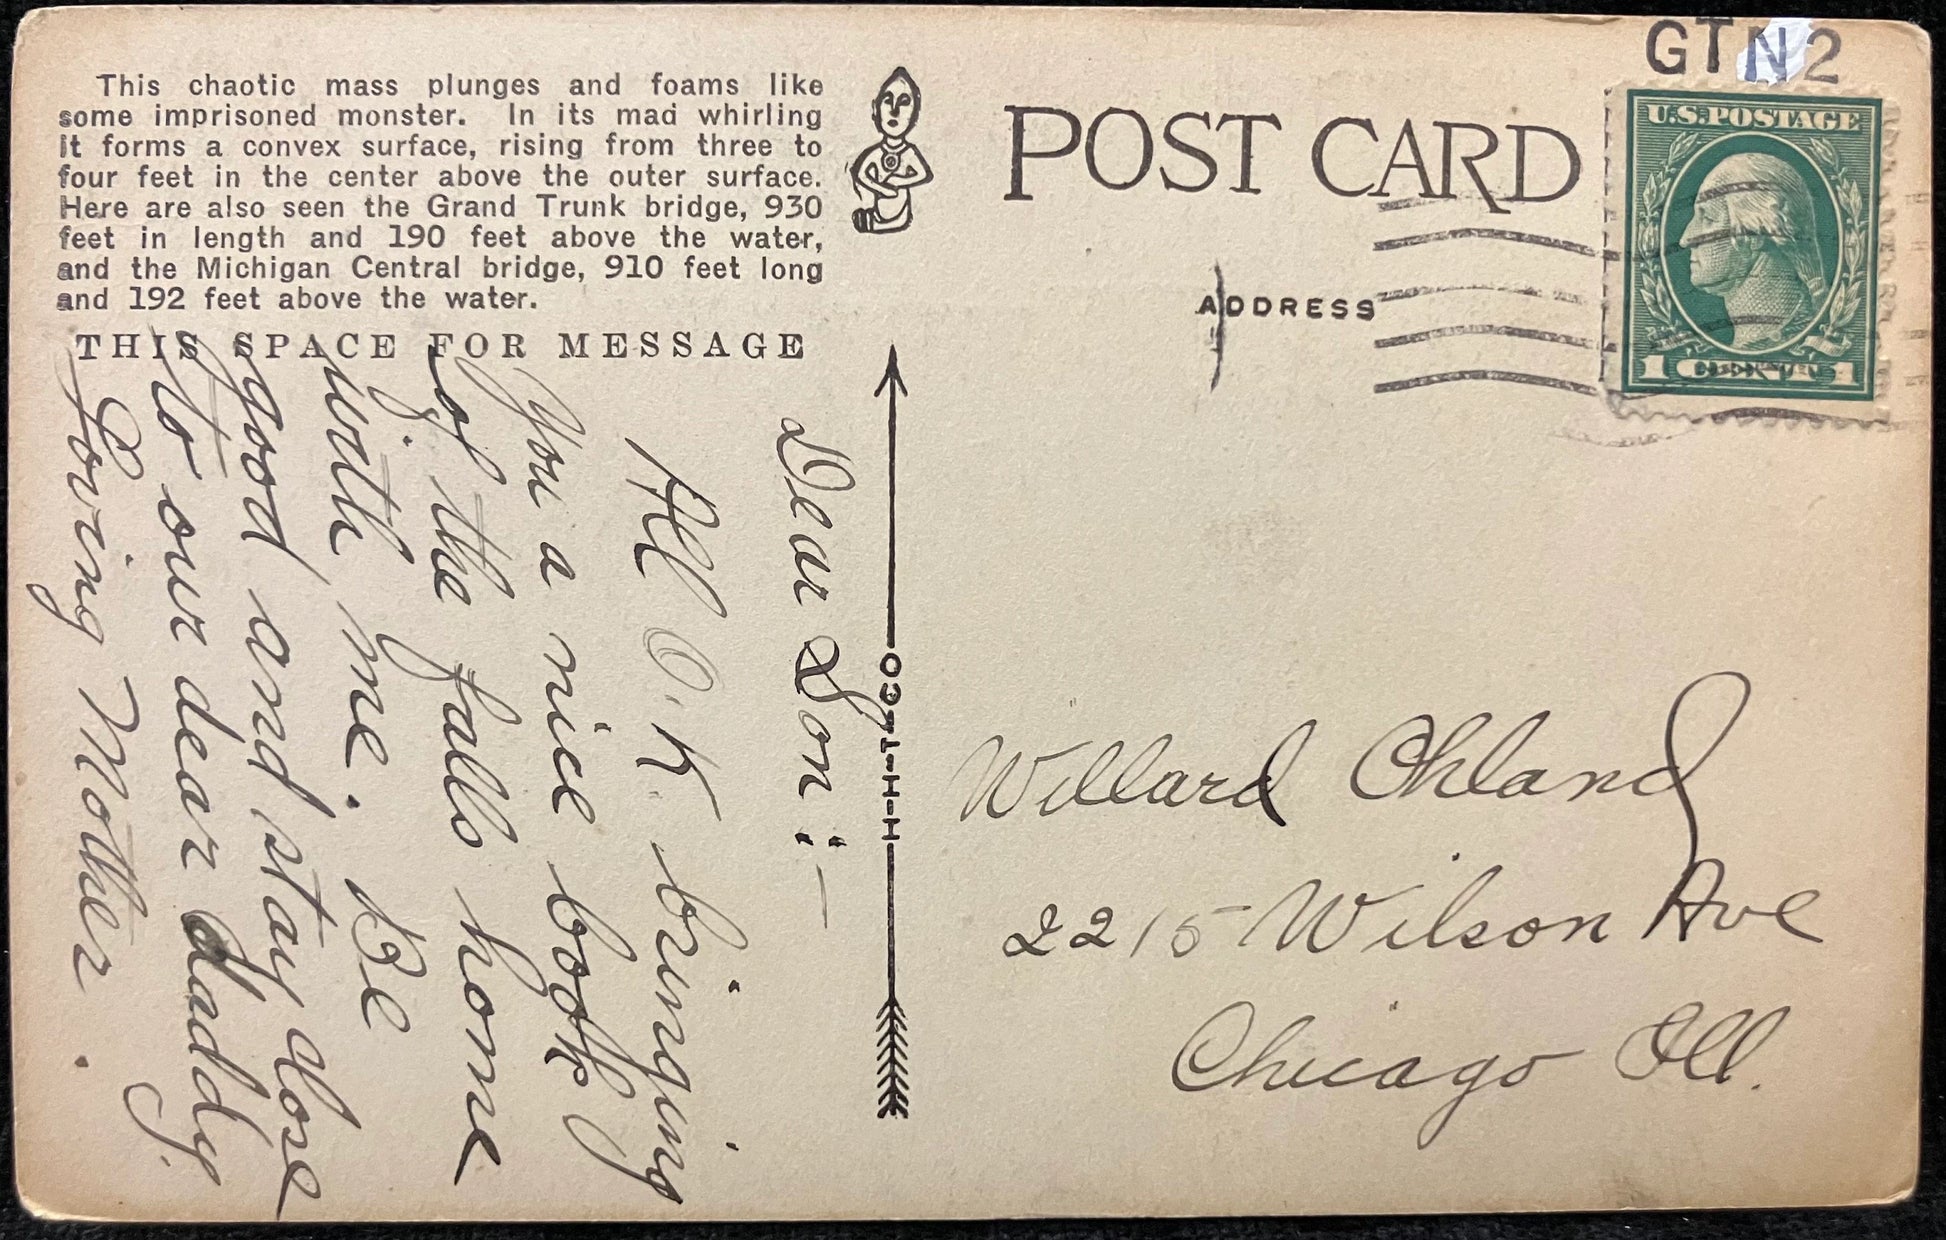 This chaotic mass plunges and foams like
some imprisoned monster. In its mad whirling
it forms a convex surface, rising from three to
four feet in the center above the outer surface.
Here are also seen the Grand Trunk bridge, 930
feet in length and 190 feet above the water,
and the Michigan Central bridge, 910 feet long
and 192 feet above the water.
THIS SPACE FOR MESSAGE
Dear Son:—
All O.K. bringing
You a nice book
of the falls home
with me. Be
good and stay close
to our dear daddy.
Loving Mother.
H-H-T-CO
POST CARD
ADDRESS
GTN2
U.S. POSTAGE
1 CENT 1
Willard Ohland
2215 Wilson Ave
Chicago Ill.